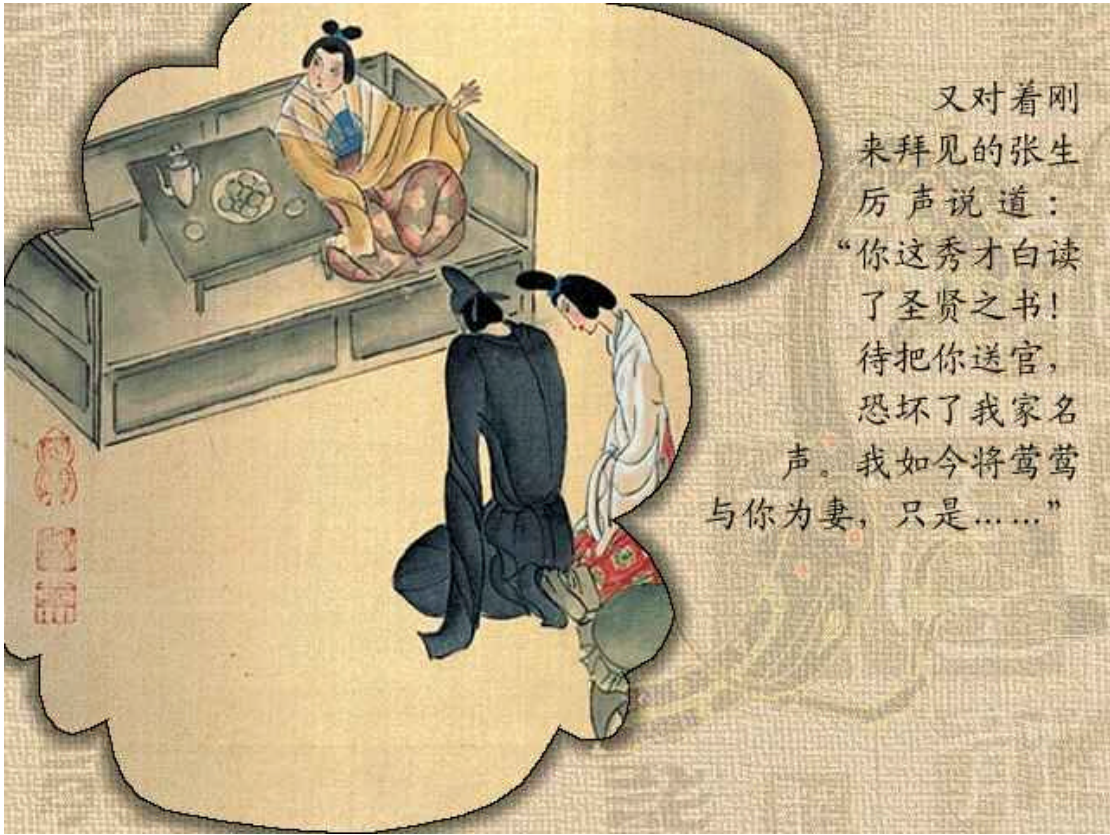 又对着刚
来拜见的张生
厉声说道：
“你这秀才白读
了圣贤之书！
待把你送官，
恐坏了我家名
声。我如今将莺莺
与你为妻，只是……”